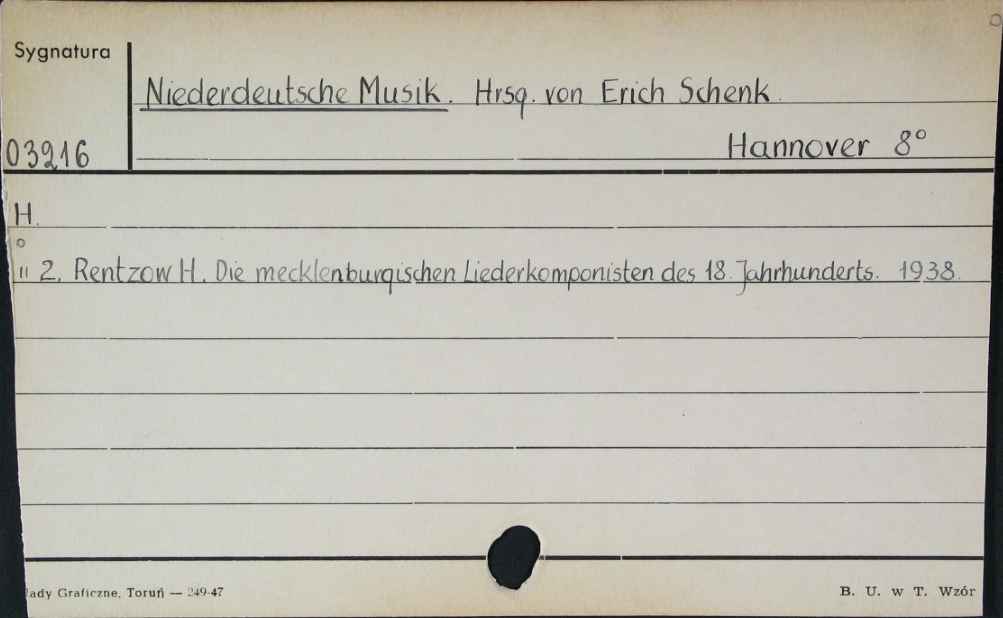 Sygnatura
Niederdeutsche Musik. Hrsg. von Erich Schenk.
03216 Hannover 8°
H.
" 2. Rentzow H. Die mecklenburgischen Liederkomponisten des 18. Jahrhunderts. 1938.
łady Graficzne, Toruń — 249-47 B. U. w T. Wzór